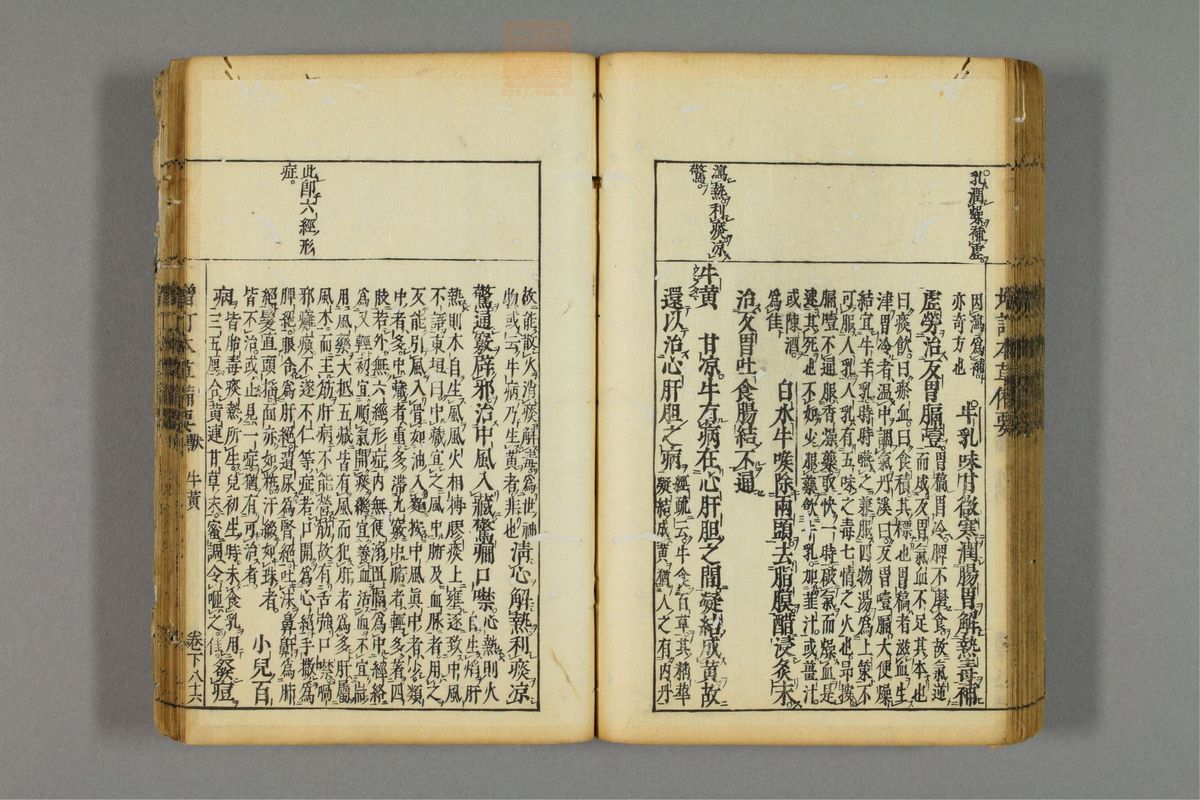 乳潤燥補虛。
瀉熱利痰凉
驚。
因瀉爲補。
亦奇方也
牛乳味甘微寒潤腸胃解熱毒補
虛勞治反胃膈噎
胃槁胃冷脾不磨食故氣逆
而成反胃氣血不足其本也
曰痰飲曰瘀血曰食積其標也胃槁者滋血生
津胃冷者温中調氣丹溪曰反胃噎膈大便燥
結宜牛羊乳時時嚥之兼服四物湯爲上策不
可服人乳人乳有五味之毒七情之火也昻按
膈噎不通服香燥藥取快一時破氣而燥血是
速其死也不如少服藥飲牛乳加韮汁或薑汁
或陳酒
爲佳
白水牛喉除兩頭去脂膜醋浸炙末
治反胃吐食腸結不通
牛黄 甘凉牛有病在心肝胆之間凝結成黄故
還以治心肝胆之病
經疏云牛食百草其精華
凝結成黄猶人之有内丹
此即六經形
症。
故能散火消痰解毒爲世神
物或云牛病乃生黄者非也
淸心解熱利痰凉
驚通竅辟邪治中風入藏驚癇口噤
心熱則火
自生焰肝
熱則木自生風風火相摶膠痰上壅遂致中風
不語東垣曰中藏宜之風中腑及血脉者用之
反能引風入骨如油入麵按中風眞中者少類
中者多中藏者重多滯九竅中腑者輕多著四
肢若外無六經形症内無便溺阻隔爲中經絡
爲又輕初宜順氣開痰繼宜養血活血不宜耑
用風藥大抵五藏皆有風而犯肝者爲多肝屬
風木而主筋肝病不能營筋故有舌強口噤喎
邪癱瘓不遂不仁等症若口開爲心絕手撒爲
脾絕眼合爲肝絕遺尿爲腎絕吐沫鼻鼾爲肺
絕髮直頭搖面赤如粧汗綴如珠者
皆不治或止見一症猶有可治者
小兒百
病
皆胎毒痰熱所生兒初生時未食乳用
三五厘合黄連甘草末蜜調令咂之佳
發痘
增訂本草備要 獸 牛黄 卷下 八十六